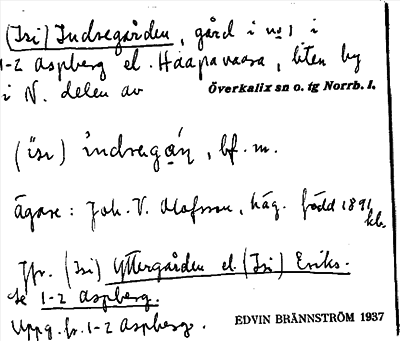 (Isi) Indregården, gård i nº 1 i
1-2 Aspberg el. Haapavaara, liten by
i N. delen av Överkalix sn o. tg Norrb. l.
(isi) indregán, bf. m.
ägare: Joh. V. Olofsson, häg. född 1891,
kb.
Jfr. (Isi) Yttergården el. (Isi) Eriks.
se 1-2 Aspberg.
Uppg. fr. 1-2 Aspberg.
EDVIN BRÄNNSTRÖM 1937